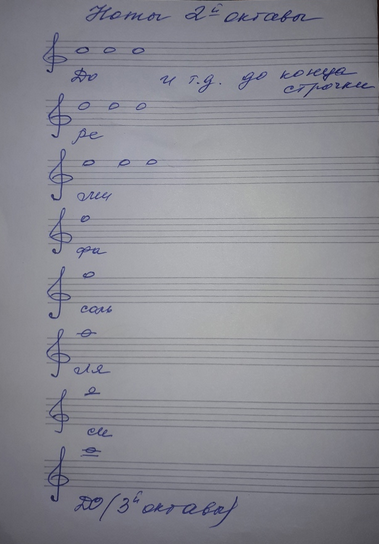 Ноты 2й октавы
До и т.д. до конца
строчки
ре
ми
фа
соль
ля
си
До (3й октавы)